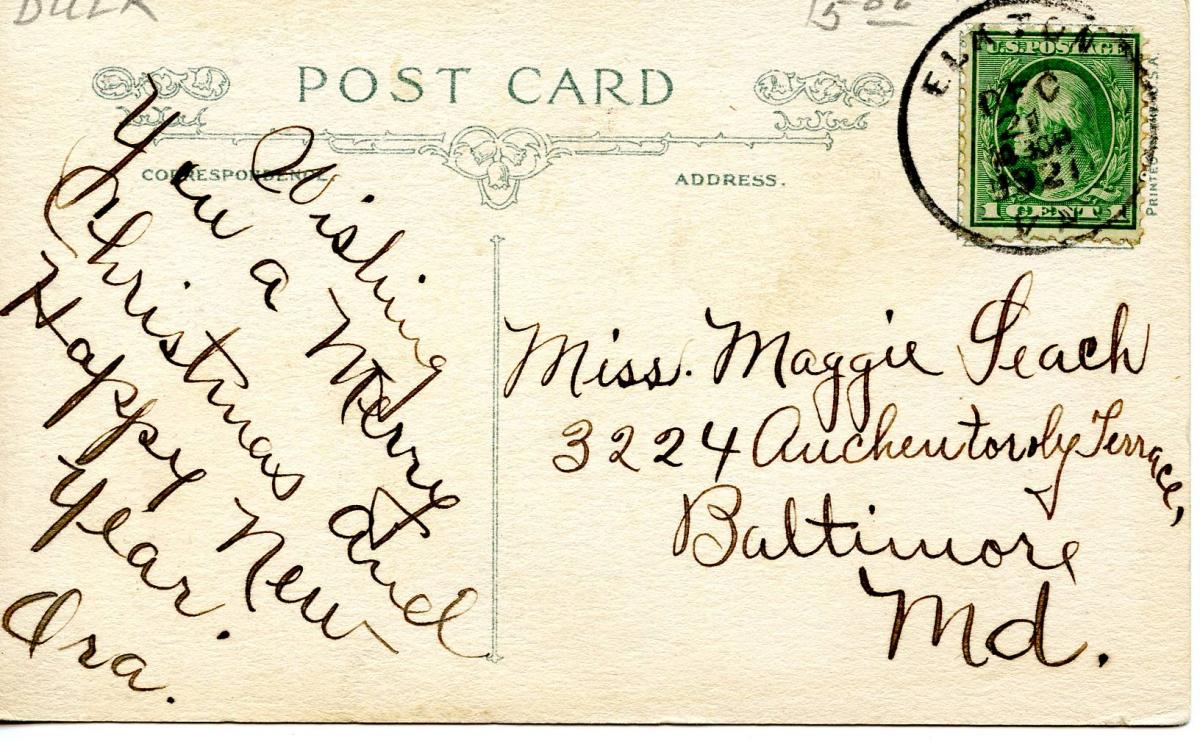 BULK
POST CARD
CORRESPONDENCE
ADDRESS.
ELKTON, VA
DEC
21
1921
U.S. POSTAGE
1 CENT 1
Wishing
You a Merry
Christmas and
Happy New
Year.
Ora.
Miss. Maggie
3224 Auchentoroly Terrace,
Baltimore
Md.